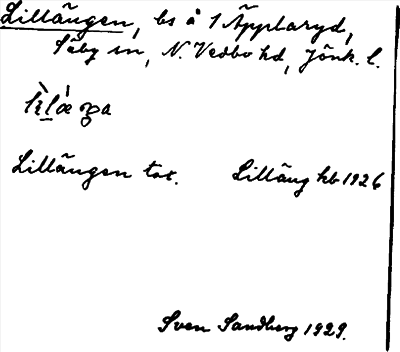 Lillängen, bs å 1 Äpplaryd,
Säby sn, N. Vedbo hd, Jönk. l.
Lillängen tox. Lilläng kb 1926
Sven Sandberg 1929.